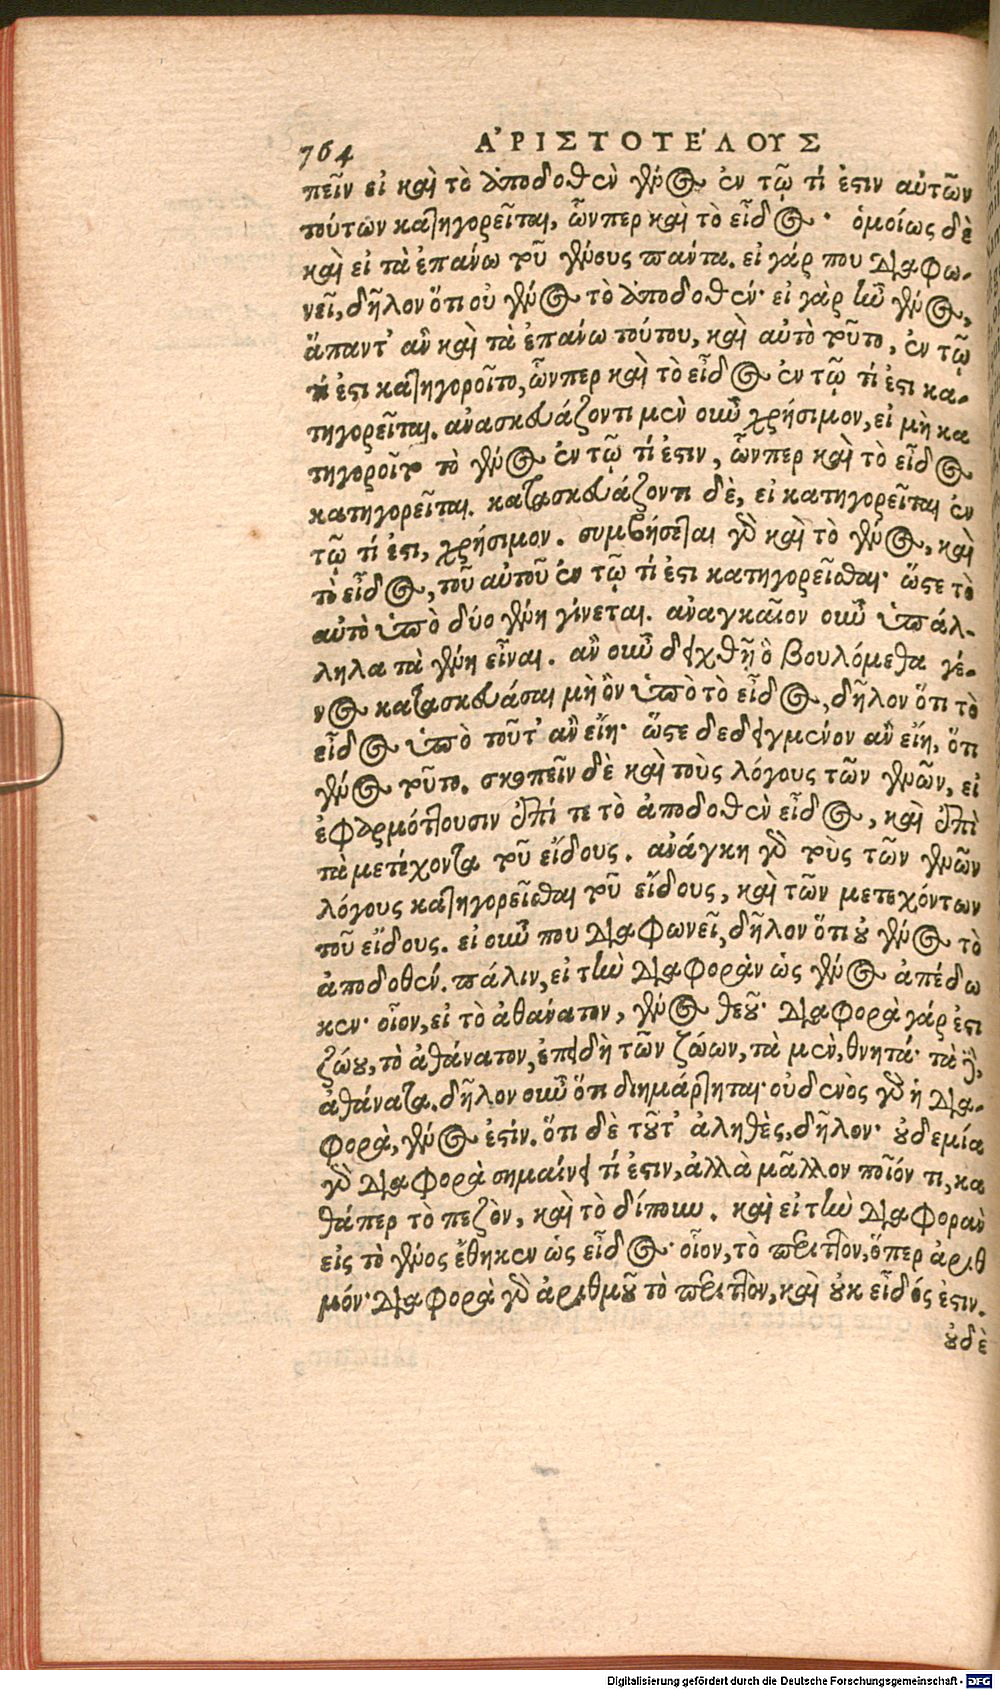 764 ἈΡΙΣΤΟΤΈΛΟΥΣ
πεῖν εἰ καὶ τὸ ἀποδοθὲν γένος ἐν τῷ τί ἐστιν αὐτῶν
τούτων κατηγορεῖται, ὧνπερ καὶ τὸ εἶδος· ὁμοίως δὲ
καὶ εἰ τὰ ἐπάνω τοῦ γένους πάντα. εἰ γάρ που διαφω-
νεῖ, δῆλον ὅτι οὐ γένος τὸ ἀποδοθέν· εἰ γὰρ ἦν γένος,
ἅπαντ’ ἂν καὶ τὰ ἐπάνω τούτου, καὶ αὐτὸ τοῦτο, ἐν τῷ
τί ἐστι κατηγοροῖτο, ὧνπερ καὶ τὸ εἶδος ἐν τῷ τί ἐστι κα-
τηγορεῖται. ἀνασκευάζοντι μὲν οὖν χρήσιμον, εἰ μὴ κα
τηγοροῖτο τὸ γένος ἐν τῷ τί ἐστιν, ὧνπερ καὶ τὸ εἶδος
κατηγορεῖται. κατασκευάζοντι δὲ, εἰ κατηγορεῖται ἐν
τῷ τί ἐστι, χρήσιμον. συμβήσεται γὰρ καὶ τὸ γένος, καὶ
τὸ εἶδος, τοῦ αὐτοῦ ἐν τῷ τί ἐστι κατηγορεῖσθαι· ὥστε τὸ
αὐτὸ ὑπὸ δύο γένη γίνεται. ἀναγκαῖον οὖν ὑπάλ-
ληλα τὰ γένη εἶναι. ἂν οὖν δειχθῇ ὃ βουλόμεθα γέ-
νος κατασκευάσαι μὴ ὂν ὑπὸ τὸ εἶδος, δῆλον ὅτι τὸ
εἶδος ὑπὸ τοῦτ’ ἂν εἴη· ὥστε δεδειγμένον ἂν εἴη, ὅτι
γένος τοῦτο. σκοπεῖν δὲ καὶ τοὺς λόγους τῶν γενῶν, εἰ
ἐφαρμόττουσιν ἐπί τε τὸ ἀποδοθὲν εἶδος, καὶ ἐπὶ
τὰ μετέχοντα τοῦ εἴδους. ἀνάγκη γὰρ τοὺς τῶν γενῶν
λόγους κατηγορεῖσθαι τοῦ εἴδους, καὶ τῶν μετεχόντων
τοῦ εἴδους. εἰ οὖν που διαφωνεῖ, δῆλον ὅτι οὐ γένος τὸ
ἀποδοθέν. πάλιν, εἰ τὴν διαφορὰν ὡς γένος ἀπέδω
κεν· οἷον, εἰ τὸ ἀθάνατον, γένος θεοῦ· διαφορὰ γάρ ἐστι
ζώου, τὸ ἀθάνατον, ἐπειδὴ τῶν ζώων, τὰ μὲν, θνητά· τὰ δὲ,
ἀθάνατα. δῆλον οὖν ὅτι διημάρτηται· οὐδενὸς γὰρ ἡ δια-
φορὰ, γένος ἐστίν. ὅτι δὲ τοῦτ’ ἀληθὲς, δῆλον· οὐδεμία
γὰρ διαφορὰ σημαίνει τί ἐστιν, ἀλλὰ μᾶλλον ποῖόν τι, κα
θάπερ τὸ πεζὸν, καὶ τὸ δίπουν. καὶ εἰ τὴν διαφορὰν
εἰς τὸ γένος ἔθηκεν ὡς εἶδος· οἷον, τὸ περιττὸν, ὅπερ ἀριθ
μόν· διαφορὰ γὰρ ἀριθμοῦ τὸ περιττὸν, καὶ οὐκ εἶδός ἐστιν.
οὐδὲ
Digitalisierung gefördert durch die Deutsche Forschungsgemeinschaft - DFG